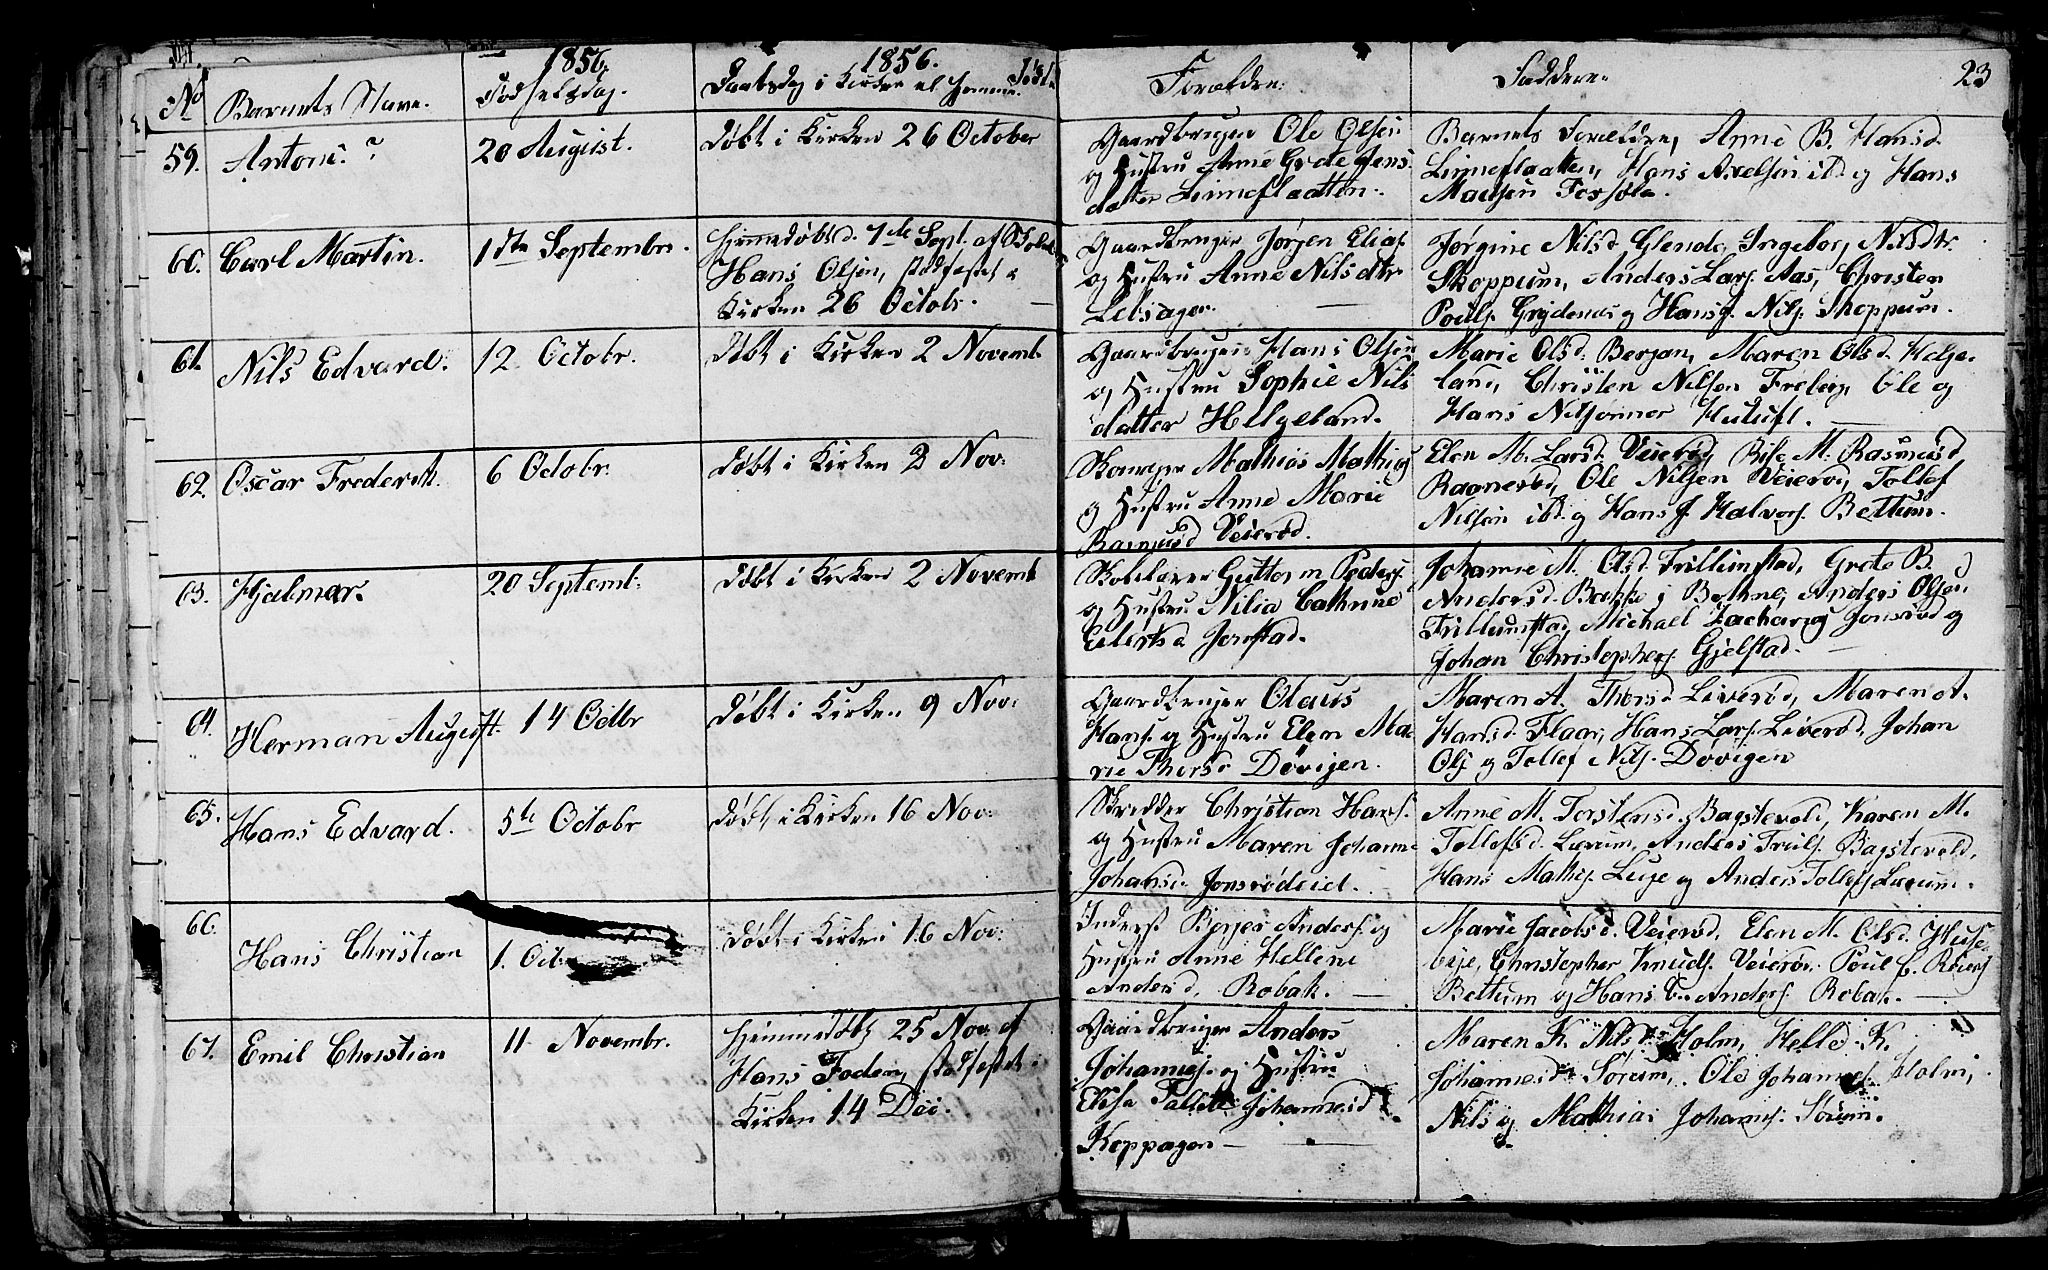 1856.
1856.
23
No
Barnets Navn.
Fødselsdag.
Daabsdag i Kirken el. Hjemme.
Forældre.
Faddere.
59.
Antoni. ?
20 August.
Døbt i Kirken 26 October
Gaardbruger Ole Olsen
og Hustru Anne Grete Jens
datter Linneflaatten.
Barnets Forældre, Anne B. Hansd.
Linneflaatten, Hans Axelsen ibd og Hans
Madsen
60.
Carl Martin.
1ste Septembr.
Hjemmedøbt d. 7de Sept. af
Hans Olsen, stadfæstet i
Kirken 26 Octobr.
Gaardbruger Jørgen Elias
og Hustru Anne Nilsdtr
Jørgine Nilsd Glende, Ingeborg Nilsdtr.
Skoppum, Anders Lars. Aas, Christen
Pouls. og Hans J. Nils. Skoppum.
61.
Nils Edvard.
12 Octobr.
Døbt i Kirken 2 Novemb.
Gaardbruger Hans Olsen
og Hustru Sophie Nils
datter Helgeland.
Marie Olsd. Berjan, Maren Olsd. Helge-
land, Christen Nilsen Freberg, Ole og
Hans
62.
Oscar Frederik.
6 Octobr.
Døbt i Kirken 2 Nov.
Mathias Mathias
og Hustru Anne Marie
Rasmusd Veierød.
Elen M. Larsd. Veierød, M. Rasmusd
Ragnerød, Ole Nilsen Veierød, Tollef
Nilsen ibd. og Hans J. Halvors. Bettum.
63.
Hjalmar.
20 Septemb.
Døbt i Kirken 2 Novemb
Skolelærer Guttorm Peders.
og Hustru Nilia Cathrine
Eilertsd Jonstad.
Johanne M. Olsd Trillumstad, Grete B.
Andersd. Bakke i Bothne, Anders Olsen
Trillumstad, Michael Zacharias Jonsrød og
Johan Christophers. Gjelstad.
64.
Herman August.
14 Octbr
Døbt i Kirken 9 Nov.
Gaardbruger Olaus
Hans. og Hustru Elen Ma-
rie Thorsd Døvigen.
Maren A. Thorsd Liverød, Maren A.
Hansd. Flaar, Hans Lars. Liverød, Johan
Ols. og Tollef Nils. Døvigen
65.
Hans Edvard.
5te Octobr
Døbt i Kirken 16 Nov.
Skredder Christian Hans.
og Hustru Maren Johanne
Johansd. Jonsrødeiet.
Anne M. Torstensd. Bagstevold, Karen M.
Tollefsd. Lærum, Anders Truls. Bagstevold,
Hans Mathis. og Anders Tollefs. Lærum.
66.
Hans Christian
1. Oct
Døbt i Kirken 16 Nov.
Inderst Børger Anders. og
Hustru Anne Hellene
Andersd. Robak.
Marie Jacobsd. Veierød, Elen M. Olsd. Huse-
Christopher Knuds. Veierød, Poul C. Reiers
Bettum og Hans C. Anders. Robak.
67.
Emil Christian
11 Novembr.
Hjemmedøbt 25 Nov. af
Hans Foden, stadfæstet i
Kirken 14 Dec.
Gaardbruger Anders
Johannes. og Hustru
Johannesd
Keppagen
Maren K. Nilsd Holm, Helle K.
Johannesd. Sørum, Ole Johannes. Holm,
Nils og Mathias Johans. Sørum.